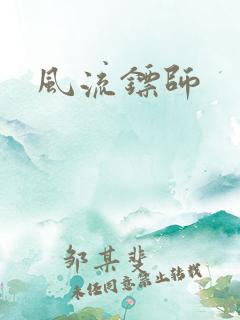 風流鏢師
邹某斐
未经同意禁止转载